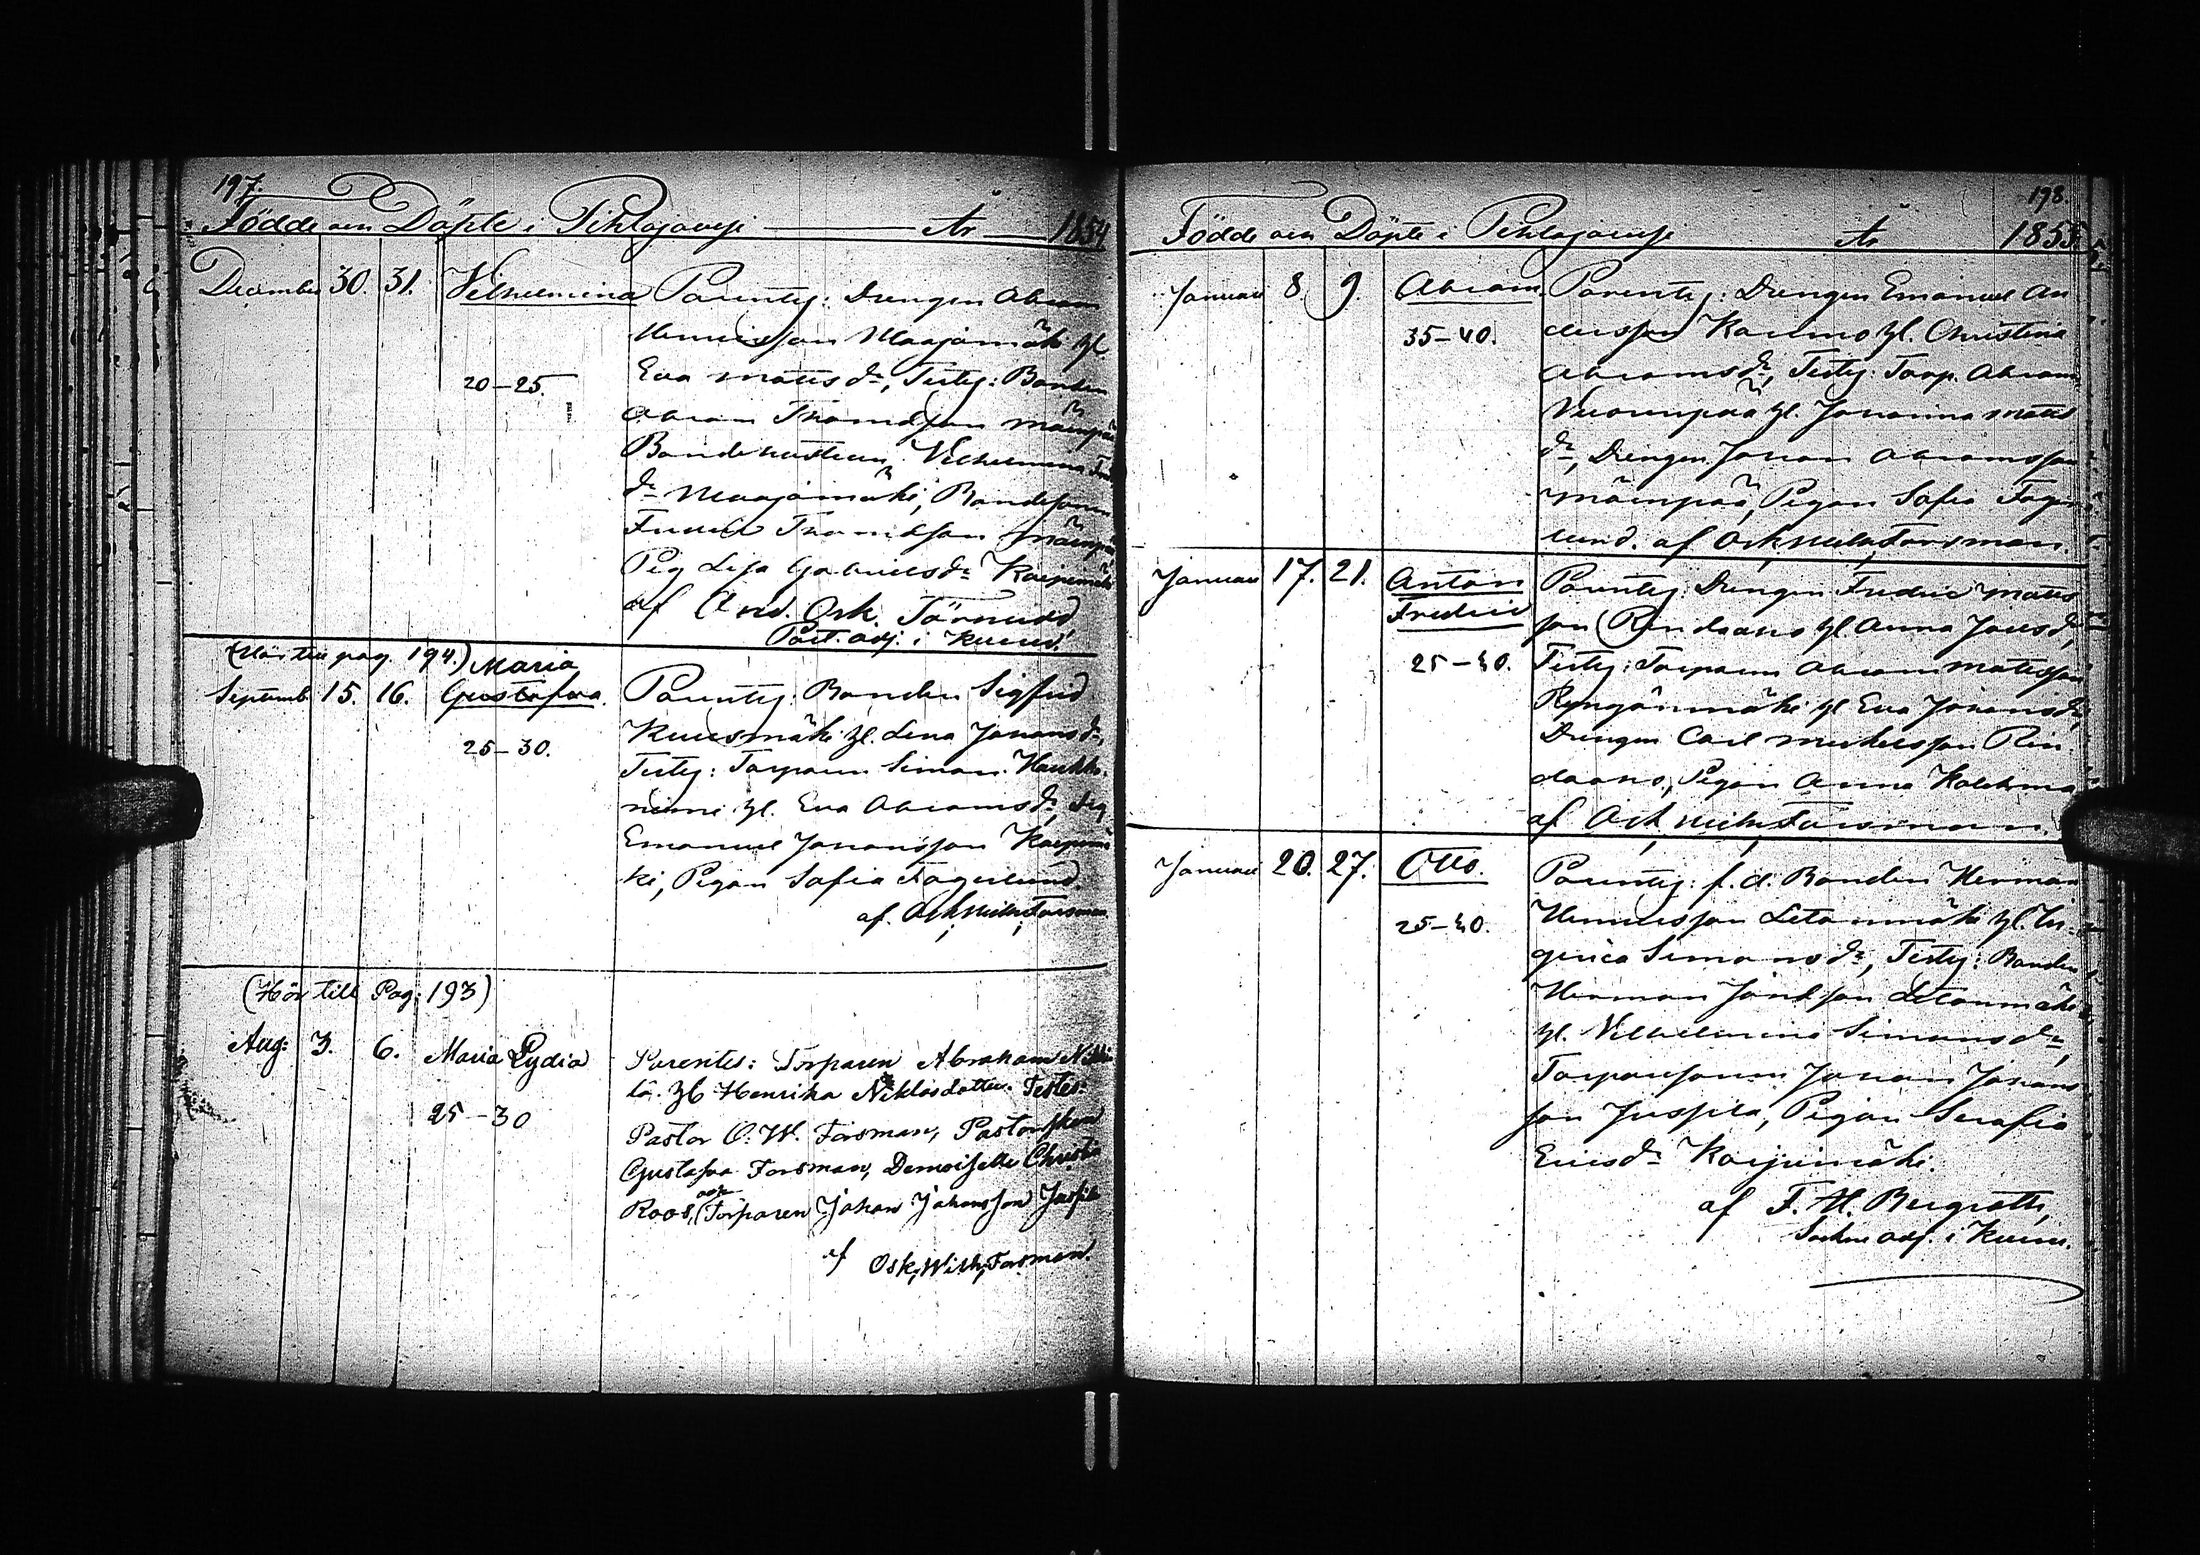 197.
Födde och Döpte i Pihlajavesi År 1854
December 30. 31. Vilhelmina Parentes: Drengen Abram
Henricsson Maajämäki hl.
20–25. Eva Matts dr, Testes: Bonden
Abram Thomasson Mäenpää
Bondehustrun Vilhelmina
dr Maajämäki, Bondesonen
Fredric Thomasson Mäenpää
Pig Lisa Gabriels dr Kaijumäki
af And. Osk. Törnudd
Past. adj. i Keuru.
(Hör till pag. 194.) Maria
Septemb. 15. 16. Gustafva. Parentes: Bonden Sigfrid
25–30. Kuusmäki hl. Lena Johans dr,
Testes: Torparen Simon Haukka-
niemi hl. Eva Abrams dr,
Emanuel Johansson Kaijumä
ki, Pigan Sofia Fagerlund.
af Osk, Wilh, Forsman
(Hör till Pag: 193)
Aug: 3. 6. Maria Lydia Parentes: Torparen Abraham Nikki
lä hl Henrika Niklasdotter. Testes:
25–30 Pastor O. W. Forsman, Pastorskan
Gustafva Forsman, Demoiselle Christin
Roos, och Torparen Johan Johansson Juspila
af Osk, Wilh, Forsman.
198.
Födde och Döpte i Pihlajavesi År 1855
Januari 8. 9. Abram. Parentes: Drengen Emanuel An
35–40. dersson Kaumo hl. Christina
Abrams dr, Testes: Torp. Abram
Vuorenpää hl. Johanna Matts
dr, Drengen Johan Abramsson
Mäenpää, Pigan Sofia Fager
lund. af Osk, Wilh, Forsman.
Januari 17. 21. Anton Parentes: Drengen Fredric Matts
Fredric son Rindaano hl. Anna Johs dr,
25–40. Testes: Torparen Abram Mattsson
Ryngänmäki hl Eva Johans dr,
Drengen Carl Michelsson Rin
daano, Pigan Anna
af Osk, Wilh, Forsman.
Januari 20. 27. Otto. Parentes: f. d. Bonden Herman
25–40. Henricsson Letonmäki hl. Re-
gina Simons dr, Testes: Bonden
Herman Johsson Letonmäki
hl. Vilhelmina Simons dr,
Torparesonen Johan Johans
son Juspila, Pigan Serafia
Erics dr Kaijumäki.
af F. H. Bergroth,
Sockne adj. i Keuru.